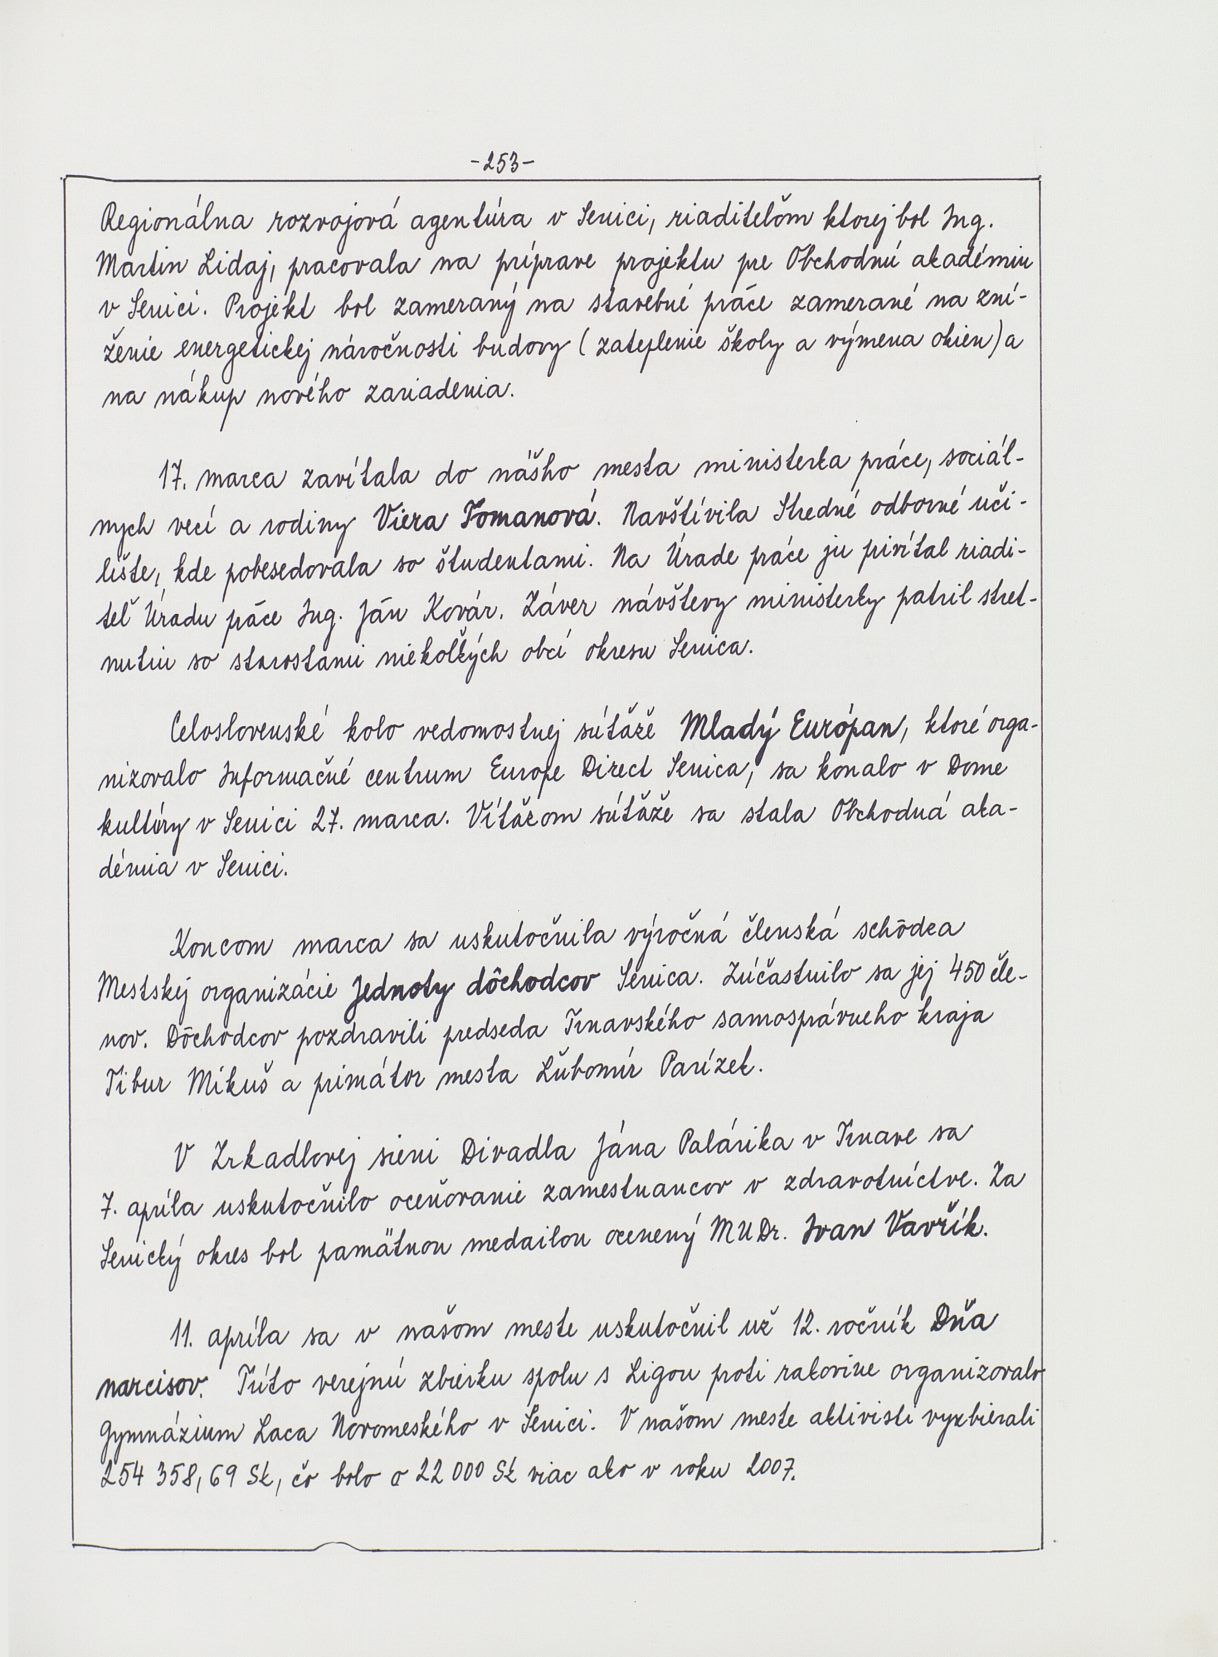 -253-
Regionálna rozvojová agentúra v Senici, riaditeľom ktorej bol Ing.
Martin Lidaj, pracovala na príprave projektu pre Obchodnú akadémiu
v Senici. Projekt bol zameraný na stavebné práce zamerané na zní-
ženie energetickej náročnosti budovy (zateplenie školy a výmena okien) a
na nákup nového zariadenia.
17. marca zavítala do nášho mesta ministerka práce, sociál-
nych vecí a rodiny Viera Tomanová. Navštívila Stredné odborné uči-
lište, kde pobesedovala so študentami. Na Úrade práce ju privítal riadi-
teľ Úradu práce Ing. Ján Kovár. Záver návštevy ministerky patril stret-
nutiu so starostami niekoľkých obcí okresu Senica.
Celoslovenské kolo vedomostnej súťaže Mladý Európan, ktoré orga-
nizovalo Informačné centrum Europe Direct Senica, sa konalo v Dome
kultúry v Senici 27. marca. Víťazom súťaže sa stala Obchodná aka-
démia v Senici.
Koncom marca sa uskutočnila výročná členská schôdza
Mestskej organizácie Jednoty dôchodcov Senica. Zúčastnilo sa jej 450 čle-
nov. Dôchodcov pozdravili predseda Trnavského samosprávneho kraja
Tibur Mikuš a primátor mesta Ľubomír Parízek.
V Zrkadlovej sieni Divadla Jána Palárika v Trnave sa
7. apríla uskutočnilo oceňovanie zamestnancov v zdravotníctve. Za
Senický okres bol pamätnou medailou ocenený MUDr. Ivan Vavřík.
11. apríla sa v našom meste uskutočnil už 12. ročník Dňa
narcisov. Túto verejnú zbierku spolu s Ligou proti rakovine organizovalo
Gymnázium Laca Novomeského v Senici. V našom meste aktivisti vyzbierali
254 358,69 Sk, čo bolo o 22 000 Sk viac ako v roku 2007.